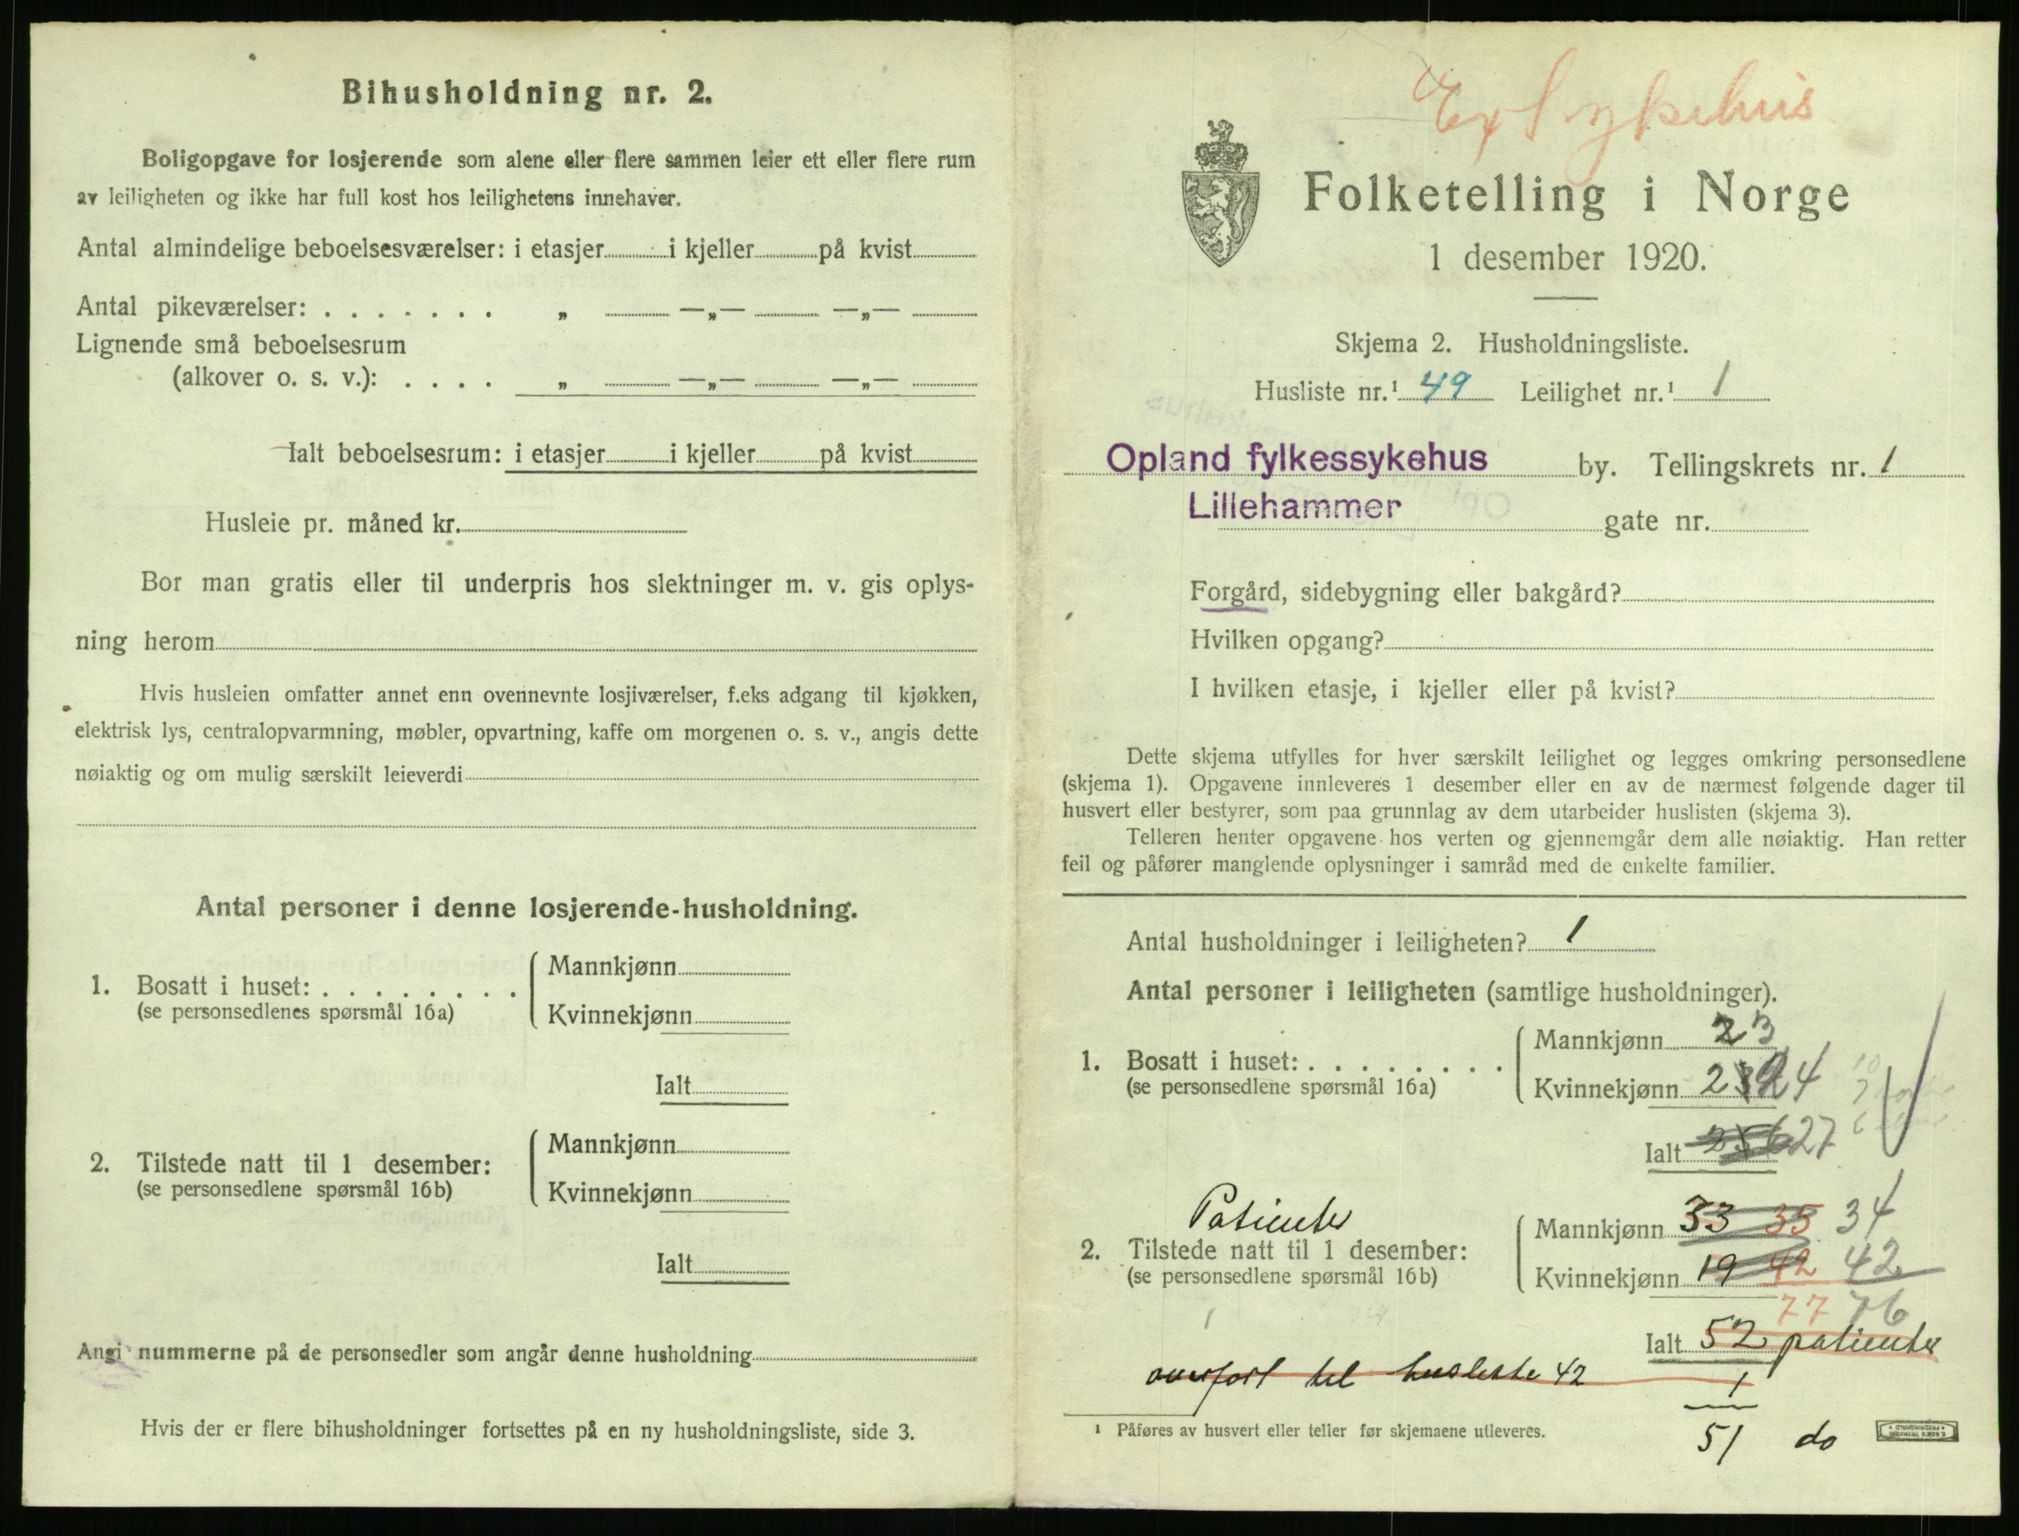 Bihusholdning nr. 2.
Boligopgave for losjerende som alene eller flere sammen leier ett eller flere rum
av leiligheten og ikke har full kost hos leilighetens innehaver.
Antal almindelige beboelsesværelser: i etasjer i kjeller på kvist
Antal pikeværelser: . . . . . . . „ —„— —„—
Lignende små beboelsesrum
(alkover o. s. v.): . . . . „ —„— —„—
Ialt beboelsesrum: i etasjer i kjeller på kvist
Husleie pr. måned kr.
Bor man gratis eller til underpris hos slektninger m. v. gis oplys-
ning herom
Hvis husleien omfatter annet enn ovennevnte losjiværelser, f.eks adgang til kjøkken,
elektrisk lys, centralopvarmning, møbler, opvartning, kaffe om morgenen o. s. v., angis dette
nøiaktig og om mulig særskilt leieverdi
Antal personer i denne losjerende-husholdning.
1. Bosatt i huset: . . . . . . . .
(se personsedlenes spørsmål 16a)
Mannkjønn
Kvinnekjønn
Ialt
2. Tilstede natt til 1 desember:
(se personsedlene spørsmål 16b)
Mannkjønn
Kvinnekjønn
Ialt
Angi nummerne på de personsedler som angår denne husholdning
Hvis der er flere bihusholdninger fortsettes på en ny husholdningsliste, side 3.
Ex Sykehus
Folketelling i Norge
1 desember 1920.
Skjema 2. Husholdningsliste.
Husliste nr.¹ 49 Leilighet nr.¹ 1
Opland fylkessykehus by. Tellingskrets nr. 1
Lillehammer gate nr.
Forgård, sidebygning eller bakgård?
Hvilken opgang?
I hvilken etasje, i kjeller eller på kvist?
Dette skjema utfylles for hver særskilt leilighet og legges omkring personsedlene
(skjema 1). Opgavene innleveres 1 desember eller en av de nærmest følgende dager til
husvert eller bestyrer, som paa grunnlag av dem utarbeider huslisten (skjema 3).
Telleren henter opgavene hos verten og gjennemgår dem alle nøiaktig. Han retter
feil og påfører manglende oplysninger i samråd med de enkelte familier.
Antal husholdninger i leiligheten? 1
Antal personer i leiligheten (samtlige husholdninger).
1. Bosatt i huset: . . . . . . . .
(se personsedlene spørsmål 16a)
Mannkjønn 23
Kvinnekjønn 24
Ialt 27
Patienter
2. Tilstede natt til 1 desember:
(se personsedlene spørsmål 16b)
Mannkjønn 33 35 34
Kvinnekjønn 19 42 42
77 76
Ialt 52 patienter
overført til husliste 42 1
51 do
¹ Påføres av husvert eller teller før skjemaene utleveres.